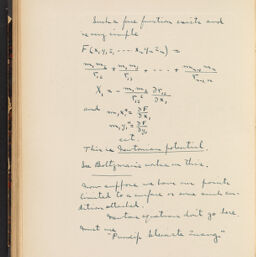 Such a force function exists and
is very simple
F(x₁y₁z₁ ... xₙyₙzₙ) =
m₁m₂/r₁₂ + m₁m₃/r₁₃ + ... +
X₁ = - m₁m₂/r₁₂² ∂r₁₂/∂x₁
and m₁x₁'' = ∂F/∂x₁
m₁y₁'' = ∂F/∂y₁
etc
This is Newtonian potential.
See Boltzmann's work on this.
Now suppose we have our points
limited to a surface or some such con-
dition attached.
Newton equations don't go here.
Must use
"Prinzip kleinste Zwangs"